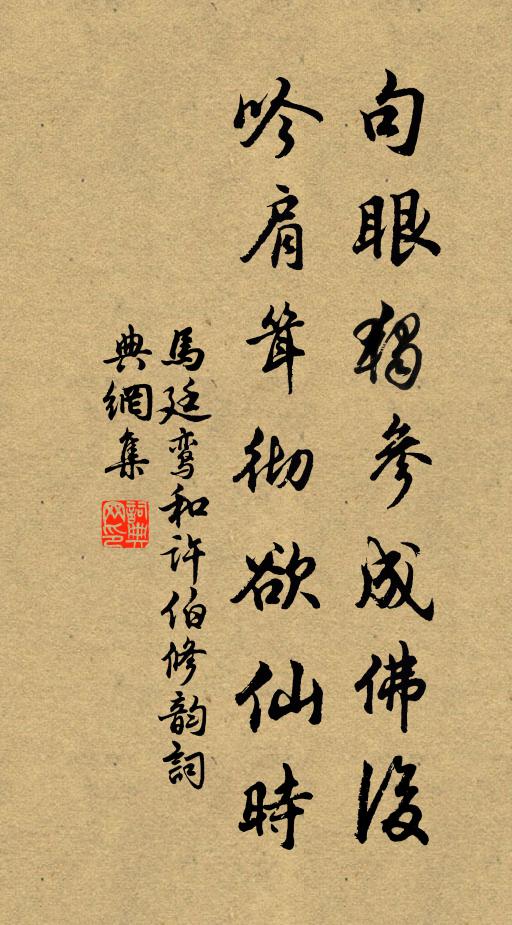 句眼獨參成佛後
吟肩聳徹欲仙時
馬廷鸾和許伯修韵詞
典網集
詞典网印